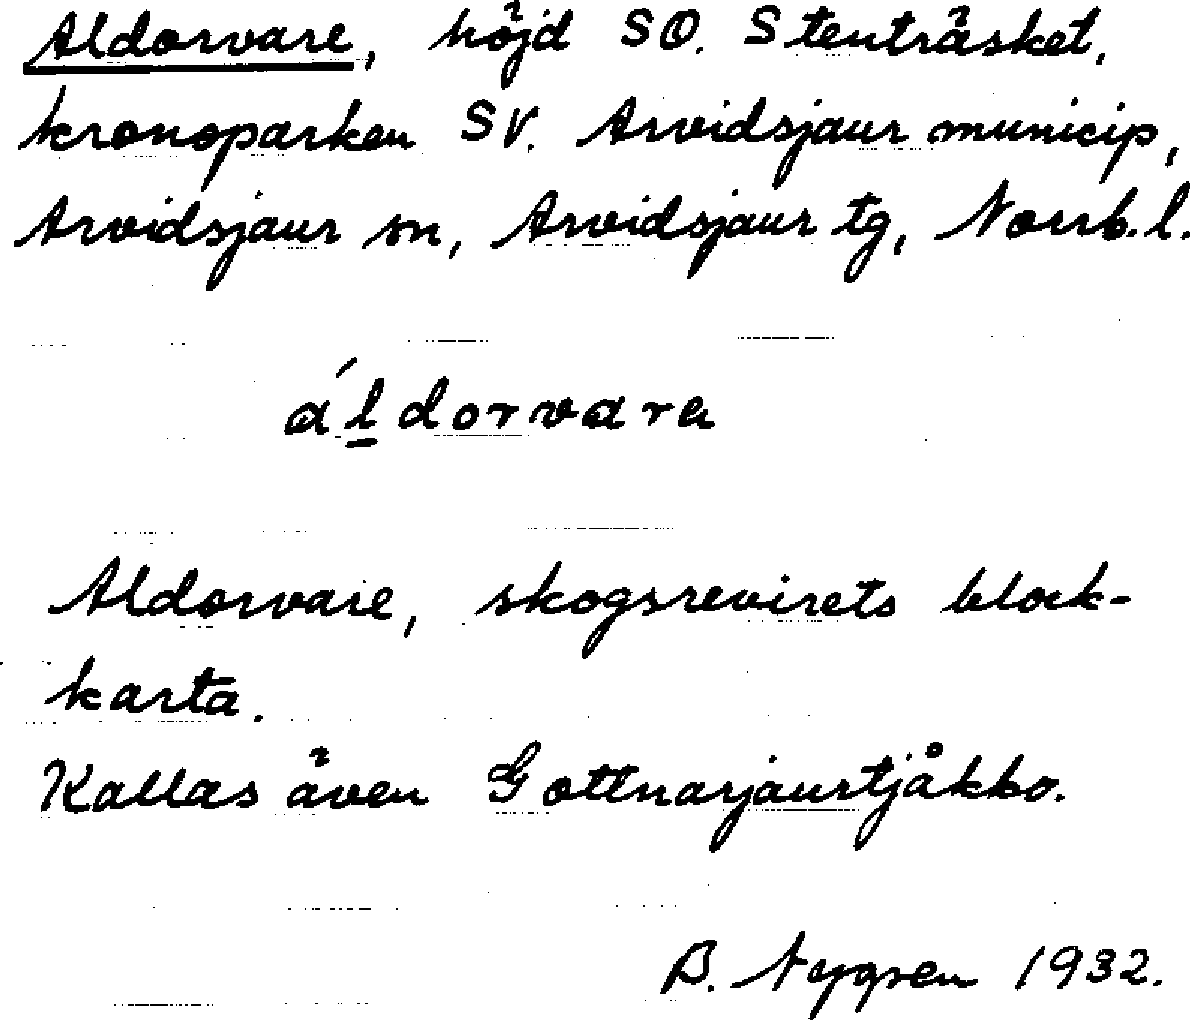 Aldorvare, höjd SO. Stenträsket,
kronoparken SV. Arvidsjaur municip,
Arvidsjaur sn, Arvidsjaur tg, Norrb. l.
áḻdorvara
Aldorvare, skogsrevirets block-
karta.
Kallas även Gottnarjaurtjåkko.
B. Nygren 1932.